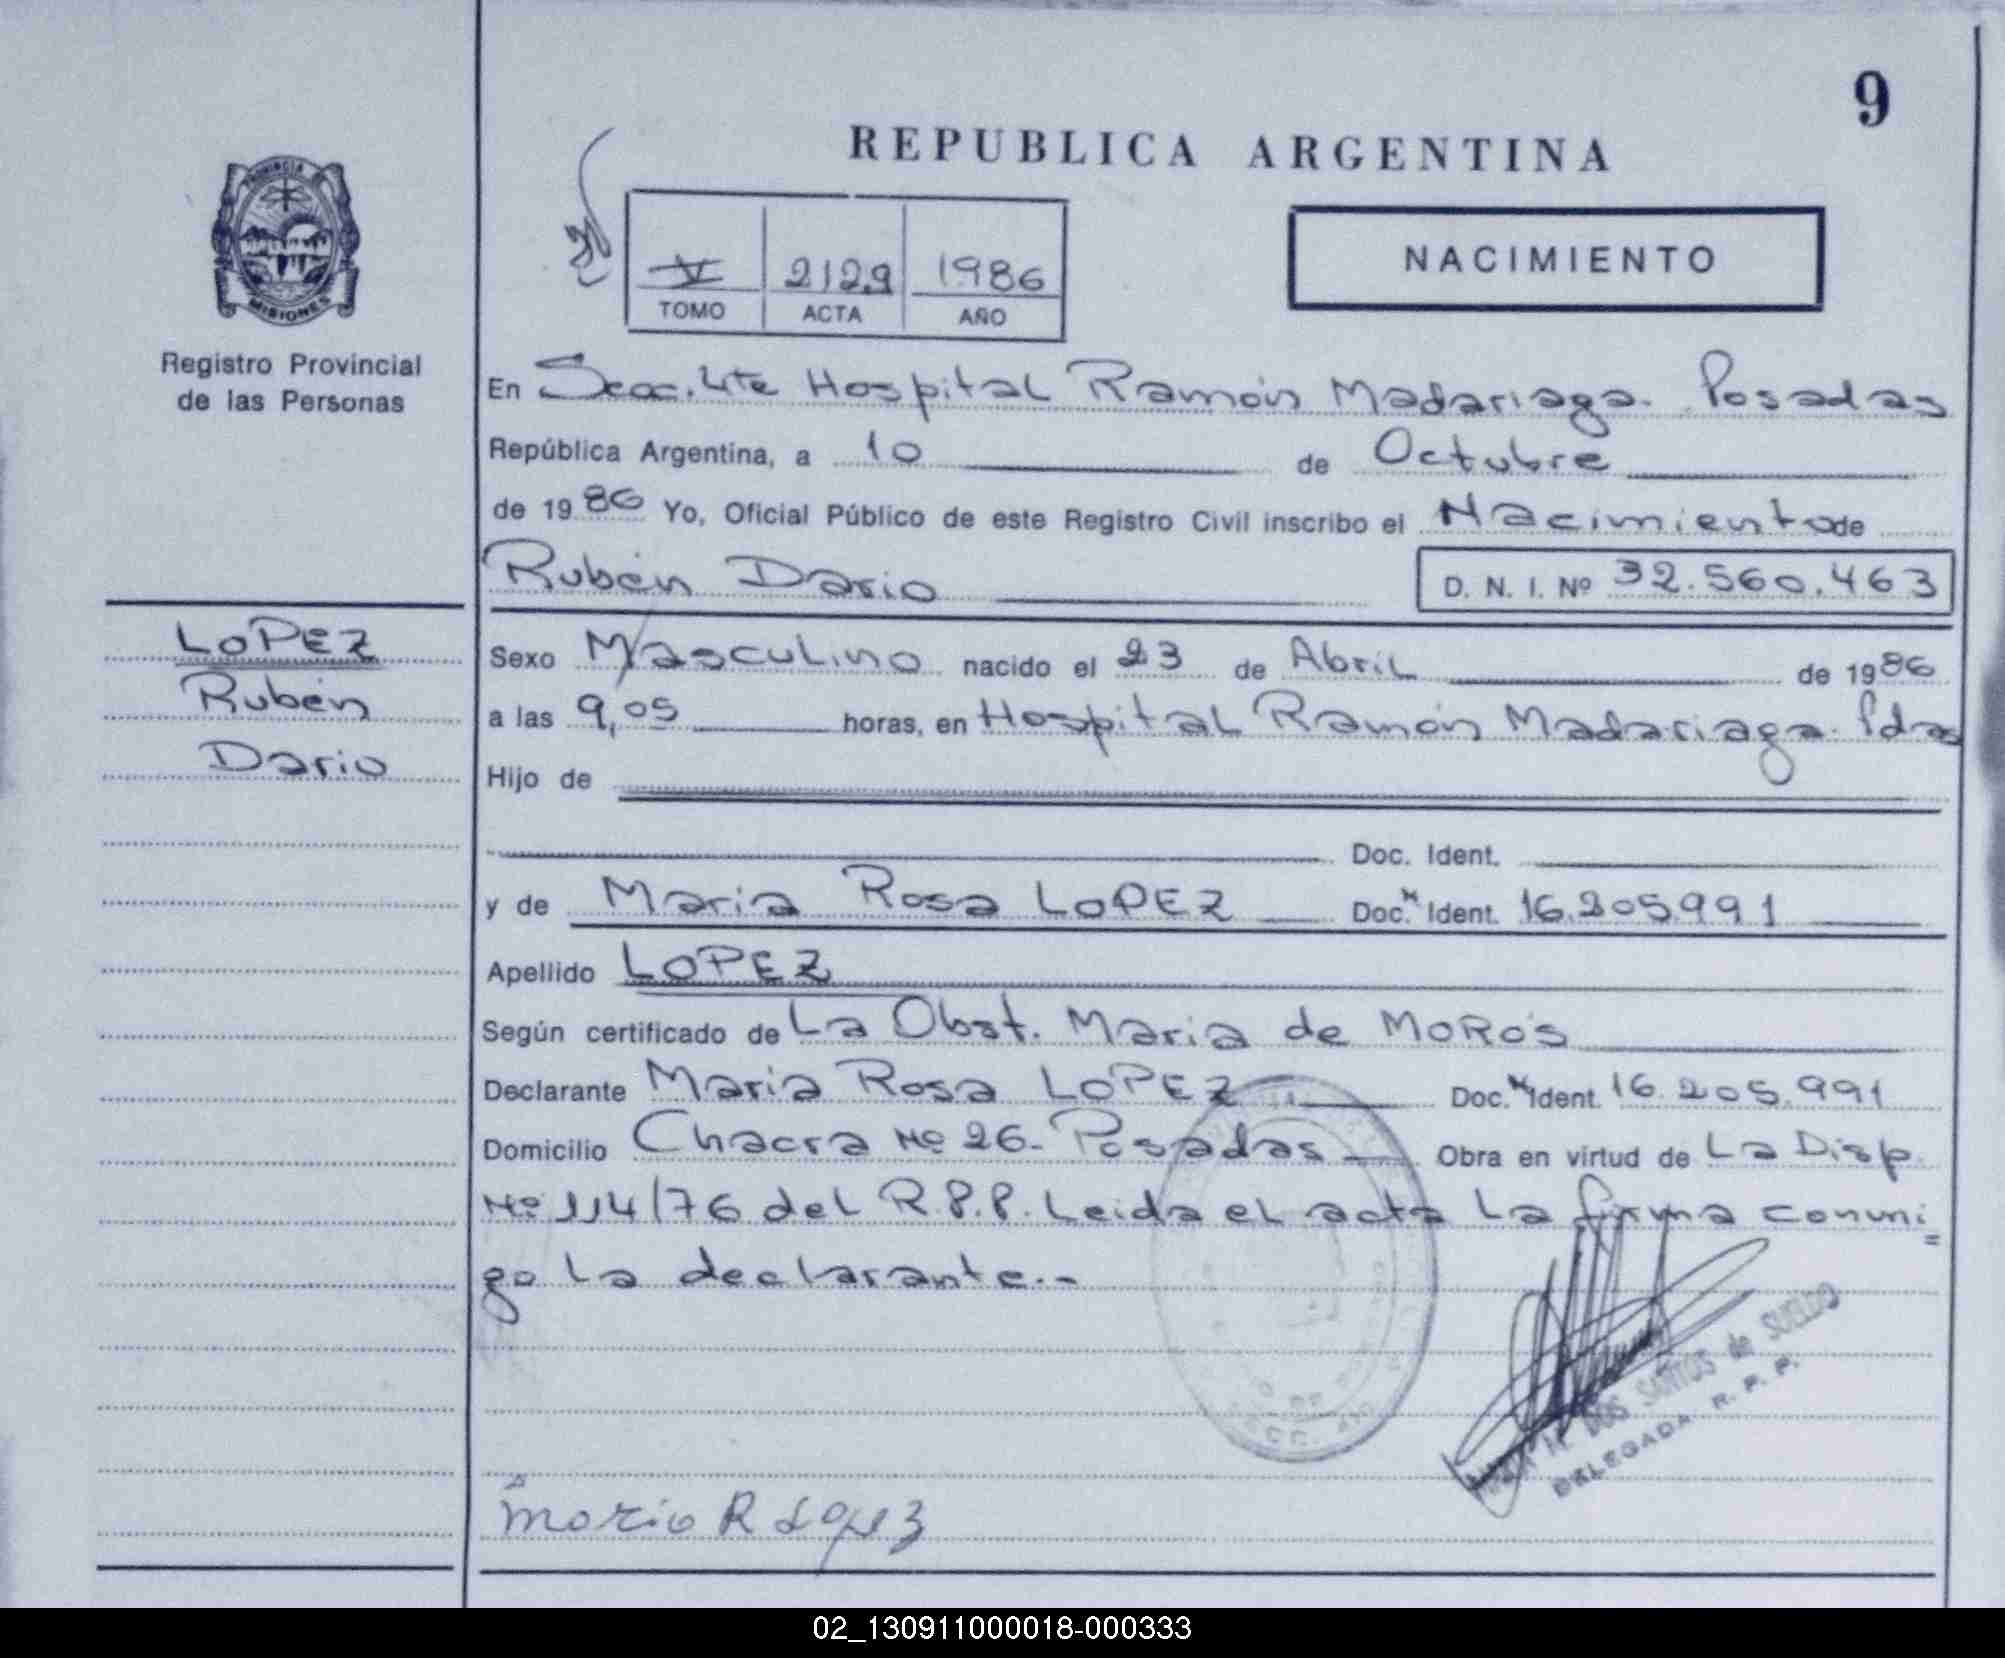 9
REPUBLICA ARGENTINA
PROVINCIA
MISIONES
V 2129 1986
TOMO ACTA AÑO
NACIMIENTO
Registro Provincial
de las Personas
En Secc. 4te Hospital Ramón Madariaga. Posadas
República Argentina, a 10 de Octubre
de 1986 Yo, Oficial Público de este Registro Civil inscribo el Nacimiento de
Rubén Dario D. N. I. Nº 32.560.463
LOPEZ
Rubén
Dario
Sexo Masculino nacido el 23 de Abril de 1986
a las 9,05 horas, en Hospital Ramón Madariaga. Pdas
Hijo de
Doc. Ident.
y de Maria Rosa LOPEZ Doc. Ident. 16.205.991
Apellido LOPEZ
Según certificado de La Obst. Maria de MORO'S
Declarante Maria Rosa LOPEZ Doc. Ident. 16.205.991
Domicilio Chacra Nº 26- Posadas Obra en virtud de La Disp.
Nº 114/76 del R.P.P. Leida el acta la firma conmi
go la declarante.-
DOS SANTOS de SUELDO
DELEGADA R. P. P.
Maria R Lopez
02_130911000018-000333